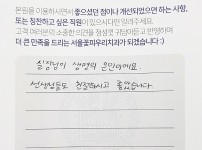 본원을 이용하시면서 좋으셨던 점이나 개선되었으면 하는 사항,
또는 칭찬하고 싶은 직원이 있으시다면 알려주세요.
고객 여러분의 소중한 의견을 정성껏 귀담아듣고 반영하여
더 큰 만족을 드리는 서울꽃피우리치과가 되겠습니다 :)
실장님이 생명의 은인이에요.
선생님들도 친절하시고 좋았습니다.